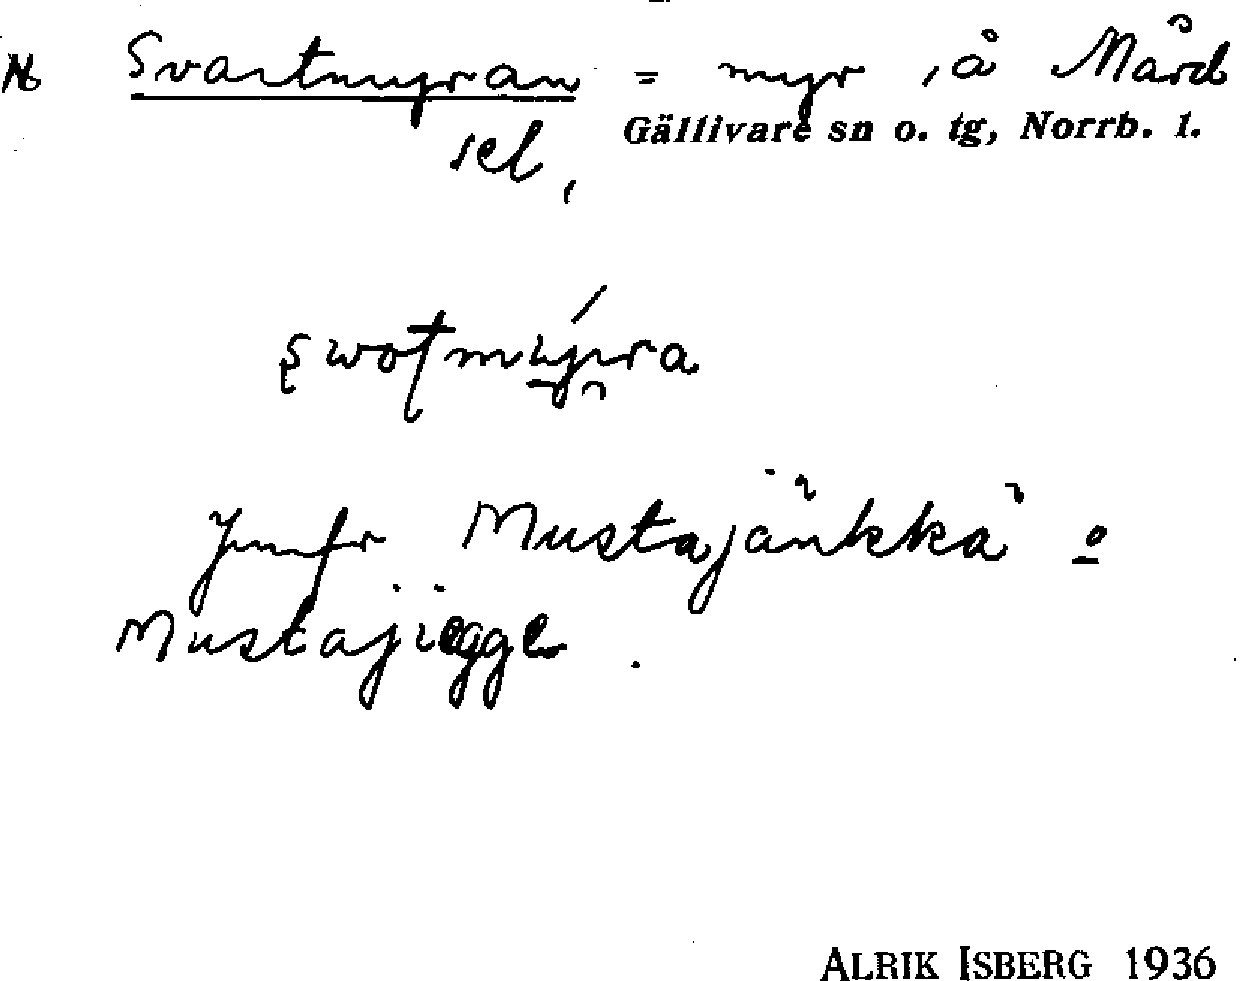 N Svartmyran = myr, å Mård
Gällivare sn o. tg, Norrb. l.
sel,
swotmýra
Jmfr Mustajänkkä o
Mustajiegge.
ALRIK ISBERG 1936